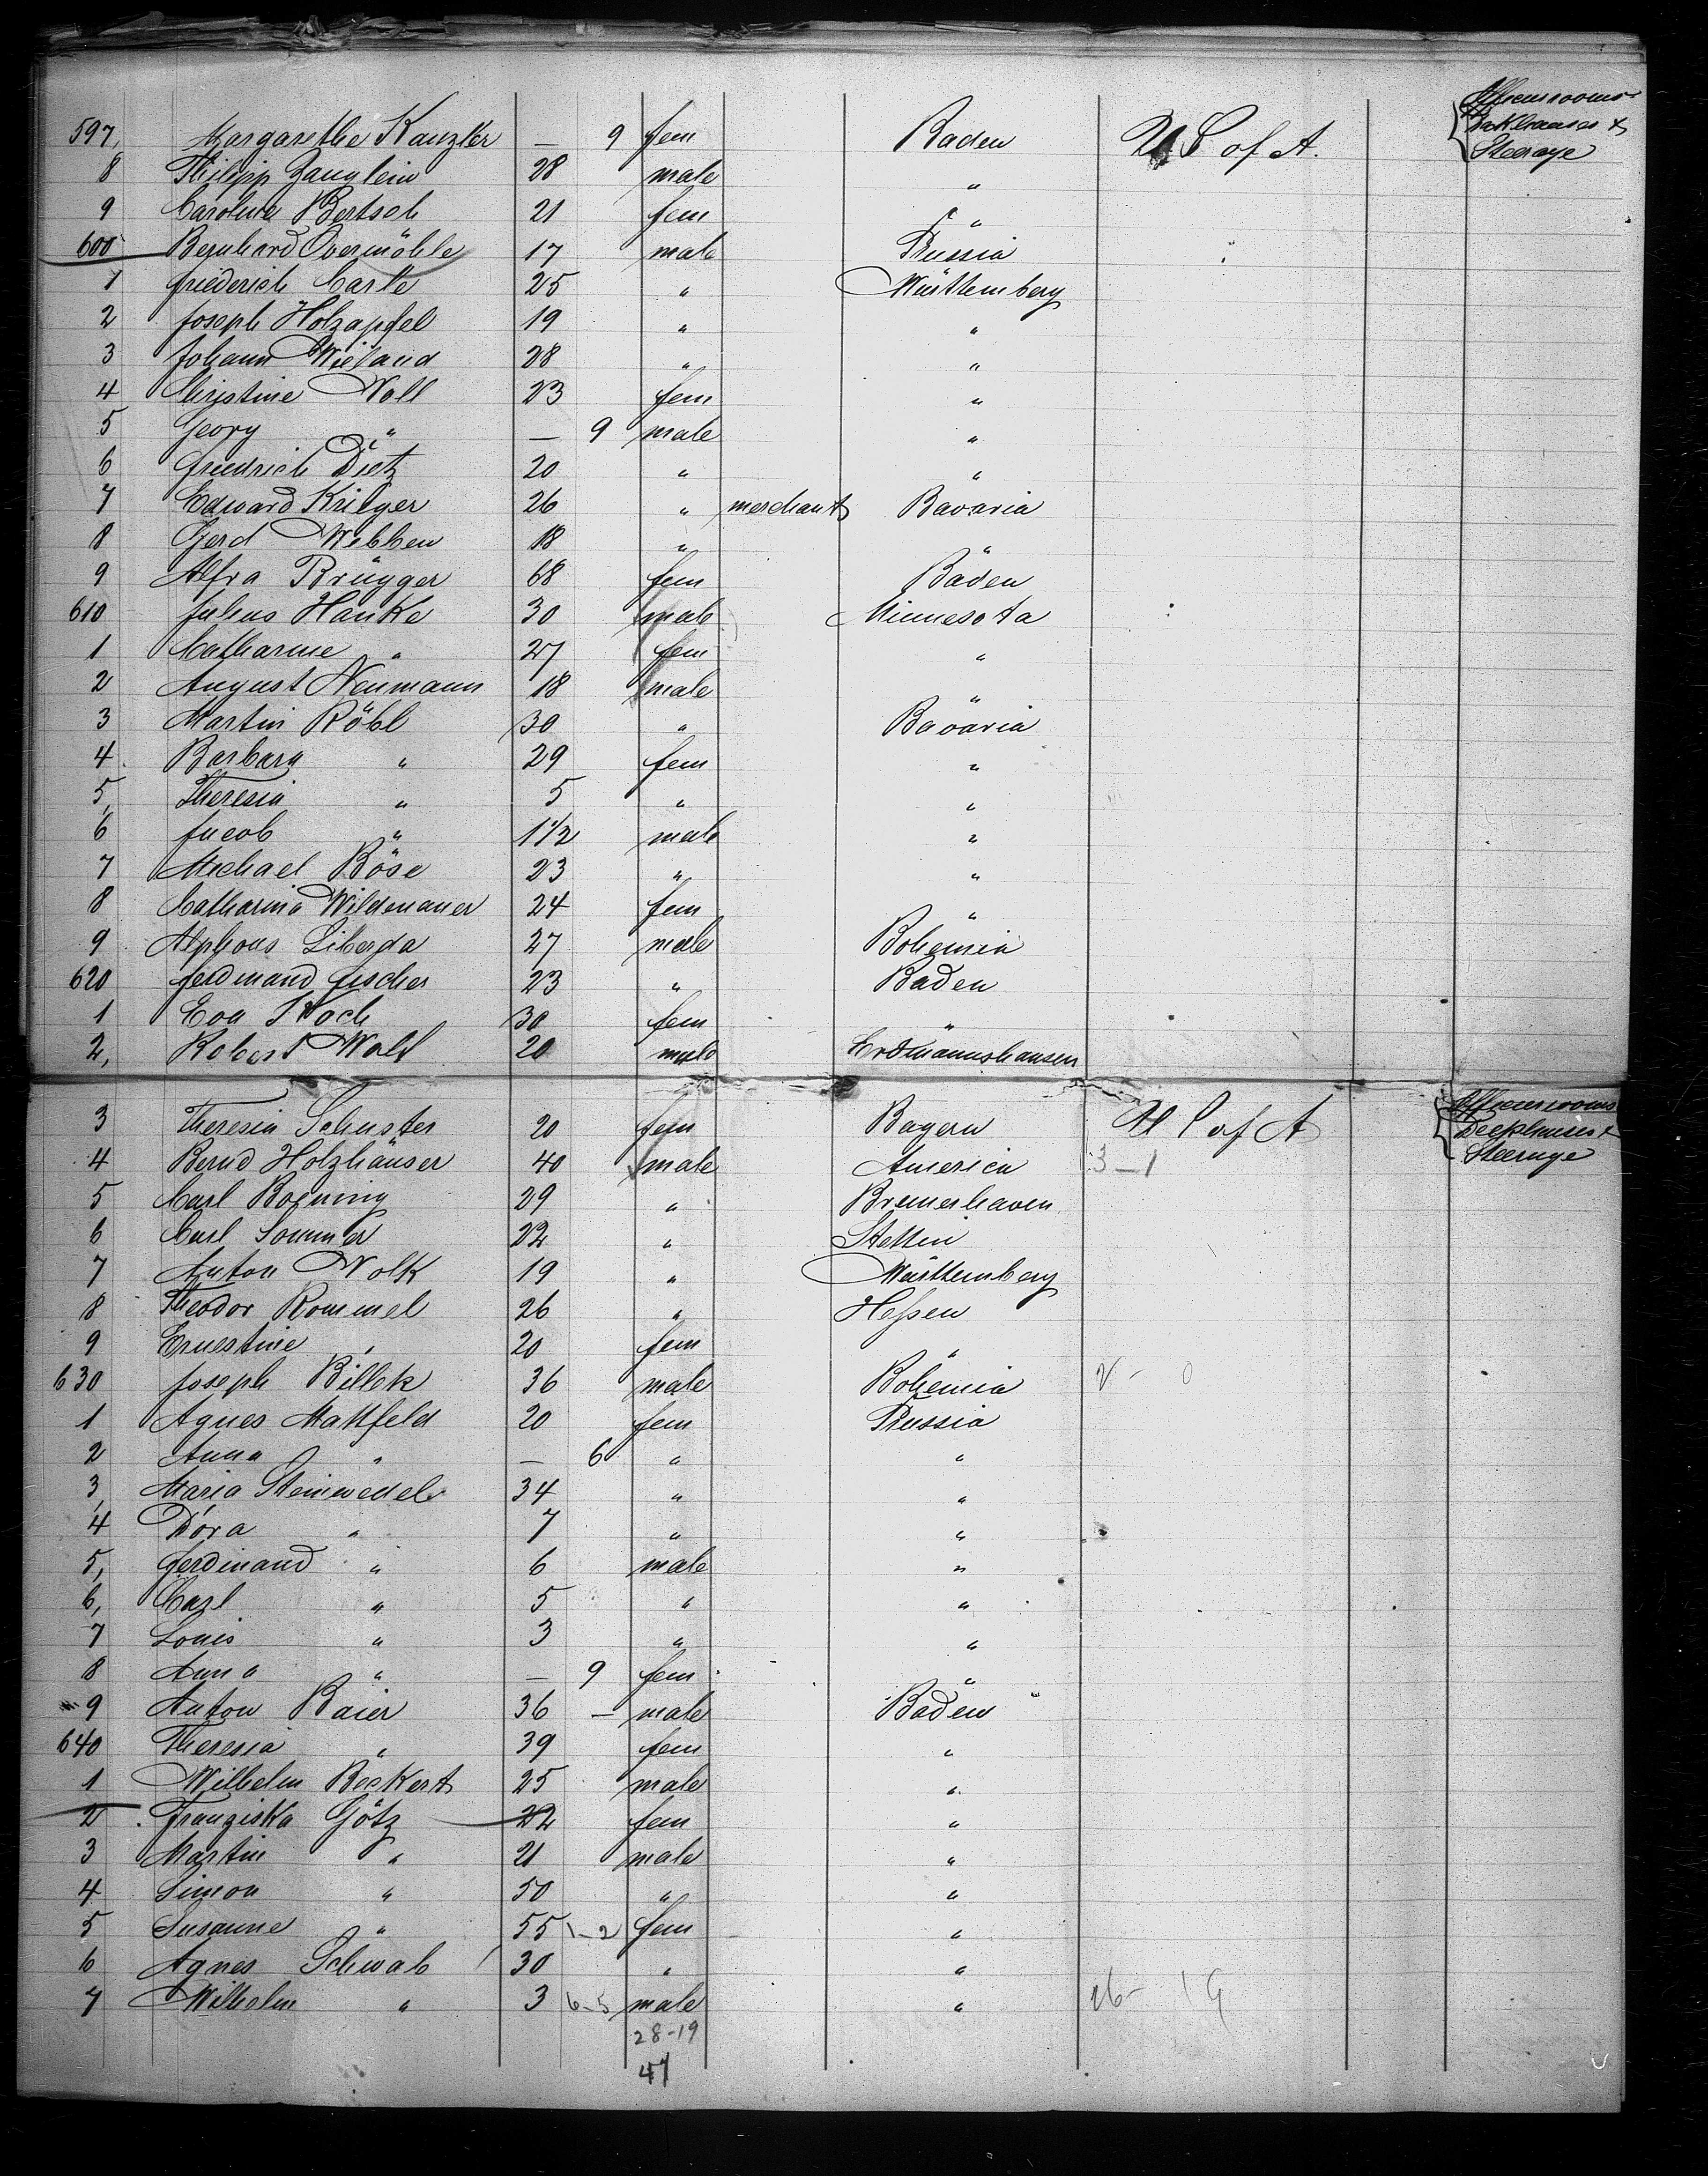 Afterrooms
597, Margarethe Kanzler — 9 fem Baden U S of A. Deckhauses &
8 Philipp Zänglein 28 male " Steerage
9 Carolina Bertsch 21 fem "
600 Bernhard Overmöhle 17 male Prussia
1 Friederich Carle 25 " Württemberg
2 Joseph Holzapfel 19 " "
3 Johann Wieland 28 " "
4 Christine Noll 23 fem "
5 Georg " — 9 male "
6 Friedrich Dietz 20 " "
7 Edward Krieger 26 " merchant Bavaria
8 Gerd Webben 18 " "
9 Afra Brügger 68 fem Baden
610 Julius Hanke 30 male Minnesota
1 Catharine " 27 fem "
2 August Neumann 18 male "
3 Martin Röhl 30 " Bavaria
4 Barbara " 29 fem "
5, Theresia " 5 " "
6 Jacob " 1 1/2 male "
7 Michael Böse 23 " "
8 Catharina Wildenauer 24 fem "
9 Alphons Liberda 27 male Bohemia
620 Ferdinand Fischer 23 " Baden
1 Eva Koch 30 fem "
2, Robert Wolf 20 male Erdmannshausen
Afterrooms
3 Theresia Schuster 20 fem Bayern U S of A Deckhauses &
4 Bernd Holzhäuser 40 male America 3-1 Steerage
5 Carl Boening 29 " Bremerhaven
6 Carl Sommer 22 " Stettin
7 Anton Nolk 19 " Württemberg
8 Theodor Rommel 26 " Hessen
9 Ernestine " 20 fem "
630 Joseph Billek 36 male Bohemia 2 - 0
1 Agnes Mattfeld 20 fem Prussia
2 Anna " — 6 " "
3, Maria Steinwedel 34 " "
4 Dora " 7 " "
5, Ferdinand " 6 male "
6, Carl " 5 " "
7 Louis " 3 " "
8 Anna " — 9 fem "
9 Anton Baier 36 — male Baden
640 Theresia " 39 fem "
1 Wilhelm Beckert 25 male "
2 Franziska Götz 22 fem "
3 Martin " 21 male "
4 Simon " 50 " "
5 Susanne " 55 1-2 fem "
6 Agnes Schwab 30 " "
7 Wilhelm " 3 6-5 male " 26- 19
28-19
47